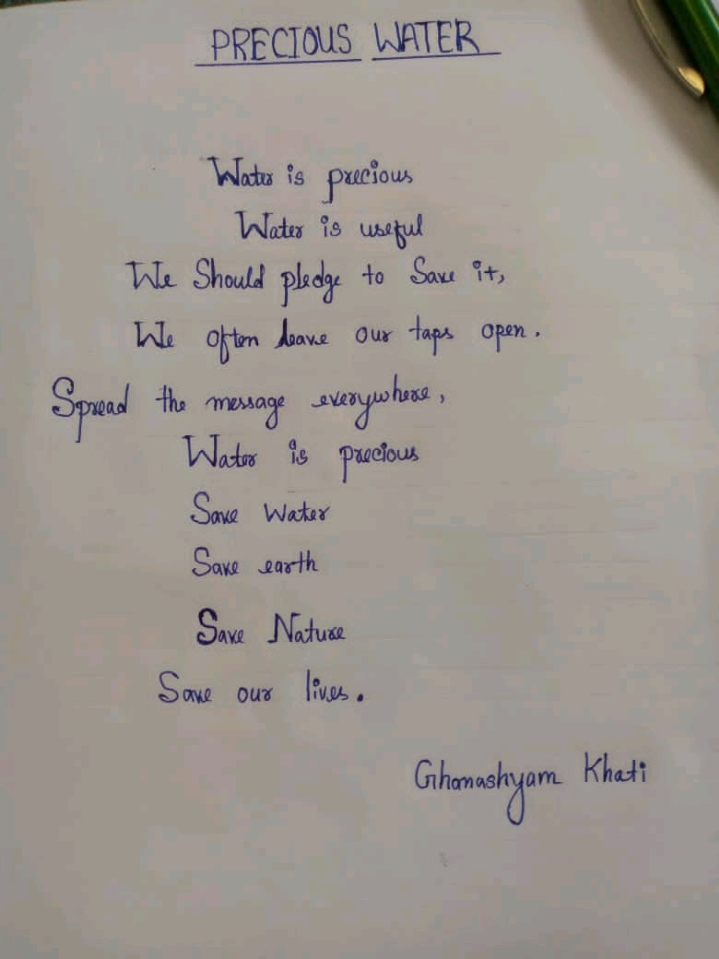 PRECIOUS WATER
Water is precious
Water is useful
We Should pledge to Save it,
We often leave our taps open.
Spread the message everywhere,
Water is precious
Save Water
Save earth
Save Nature
Save our lives.
Ghanashyam Khati